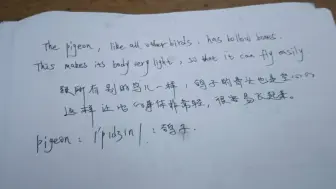 The pigeon, like all other birds, has hollow bones.
This makes its body very light, so that it can fly easily
跟所有别的鸟儿一样，鸽子的骨头也是空心的
这样让它的身体非常轻，很容易飞起来。
pigeon: /'pidʒin/: 鸽子.